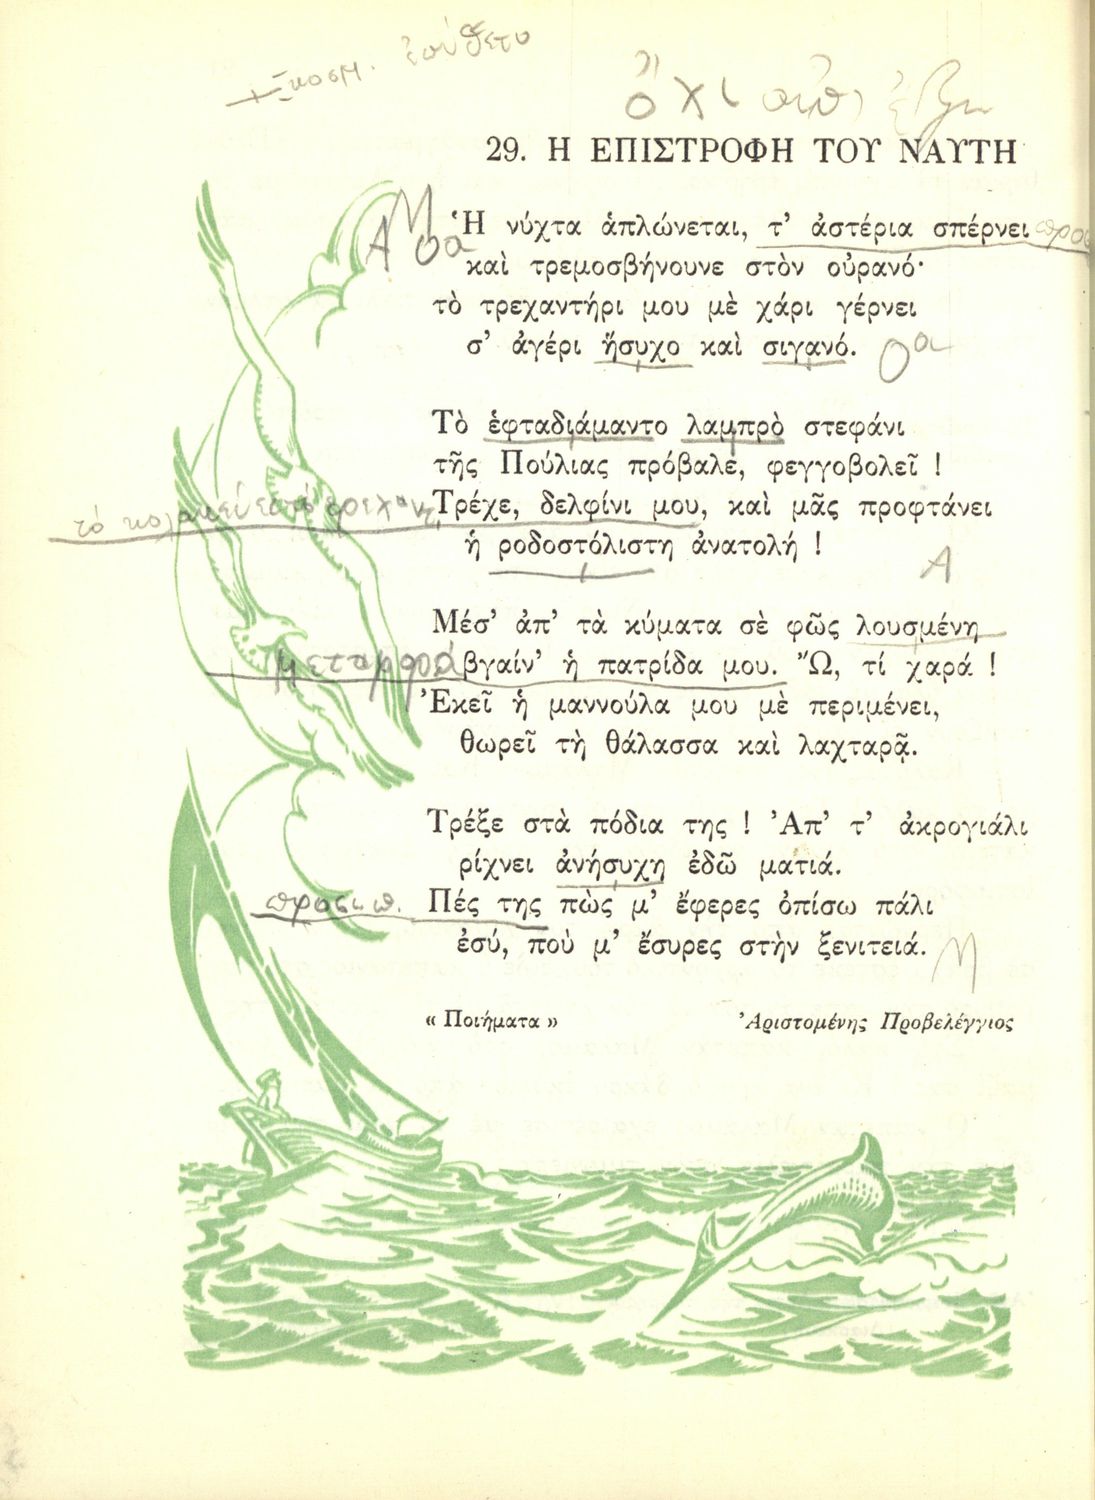 κοσμ. ἐπίθετο
ὄχι
29. Η ΕΠΙΣΤΡΟΦΗ ΤΟΥ ΝΑΥΤΗ
Ἡ νύχτα ἁπλώνεται, τ’ ἀστέρια σπέρνει
καὶ τρεμοσβήνουνε στὸν οὐρανό·
τὸ τρεχαντήρι μου μὲ χάρι γέρνει
σ’ ἀγέρι ἥσυχο καὶ σιγανό.
Τὸ ἑφταδιάμαντο λαμπρὸ στεφάνι
τῆς Πούλιας πρόβαλε, φεγγοβολεῖ !
Τρέχε, δελφίνι μου, καὶ μᾶς προφτάνει
ἡ ροδοστόλιστη ἀνατολή !
Α
Μέσ’ ἀπ’ τὰ κύματα σὲ φῶς λουσμένη
μεταφορά βγαίν’ ἡ πατρίδα μου. Ὤ, τί χαρά !
Ἐκεῖ ἡ μαννούλα μου μὲ περιμένει,
θωρεῖ τὴ θάλασσα καὶ λαχταρᾷ.
Τρέξε στὰ πόδια της ! Ἀπ’ τ’ ἀκρογιάλι
ρίχνει ἀνήσυχη ἐδῶ ματιά.
προσωπ. Πές της πὼς μ’ ἔφερες ὀπίσω πάλι
ἐσύ, ποὺ μ’ ἔσυρες στὴν ξενιτειά.
« Ποιήματα » Ἀριστομένης Προβελέγγιος